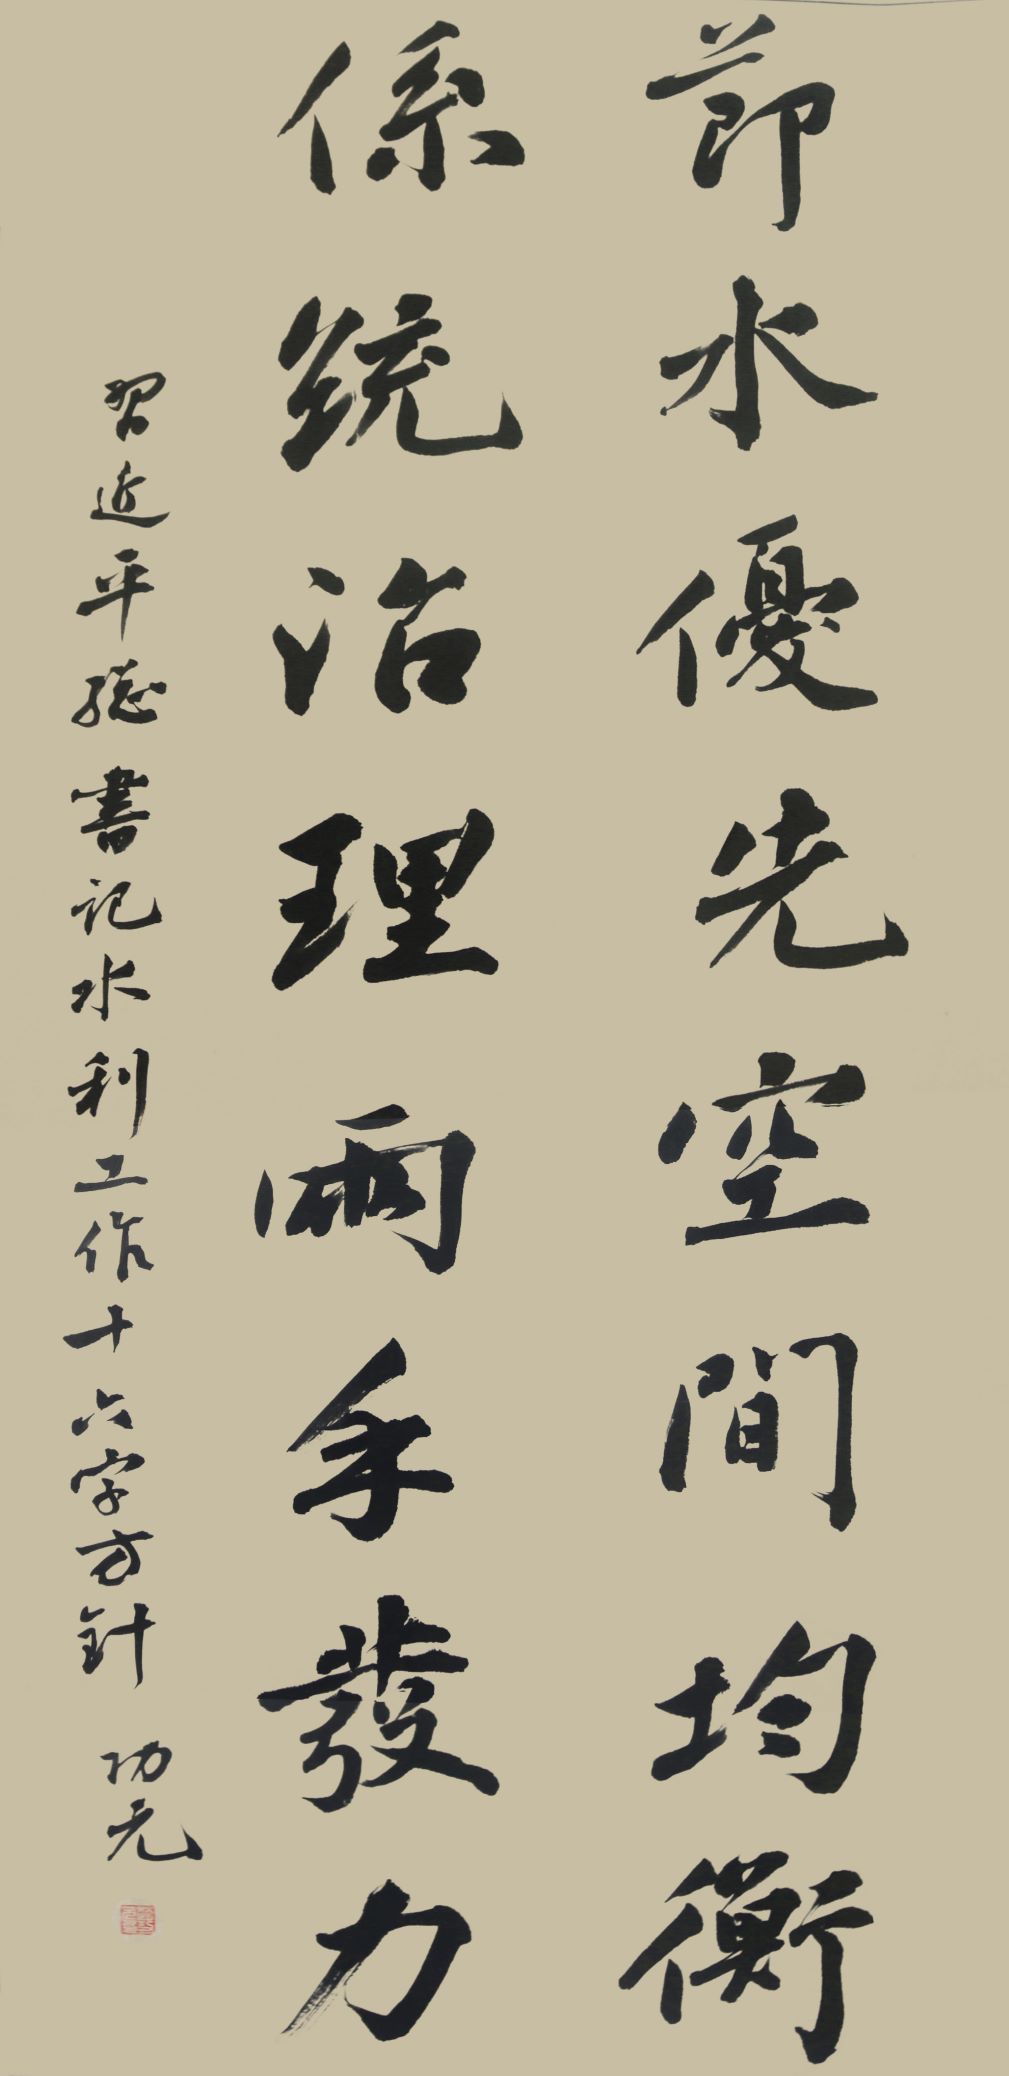 節水優先空間均衡
係統治理兩手發力
習近平總書記水利工作十六字方針
功元